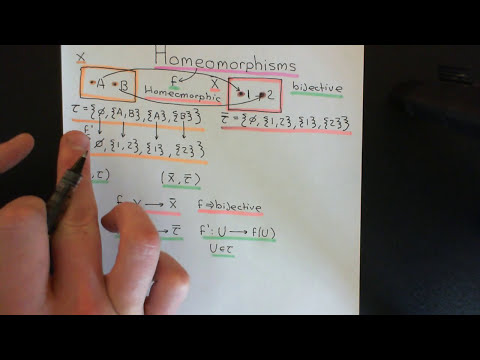 Homeomorphisms
X f X̄
A B Homeomorphic 1 2 bijective
τ = {∅, {A,B}, {A}, {B}} τ̄ = {∅, {1,2}, {1}, {2}}
f'
∅, {1,2}, {1}, {2}}
, τ) (X̄, τ̄)
f X → X̄ f ⇒ bijective
→ τ̄ f': U → f(U)
U∈τ